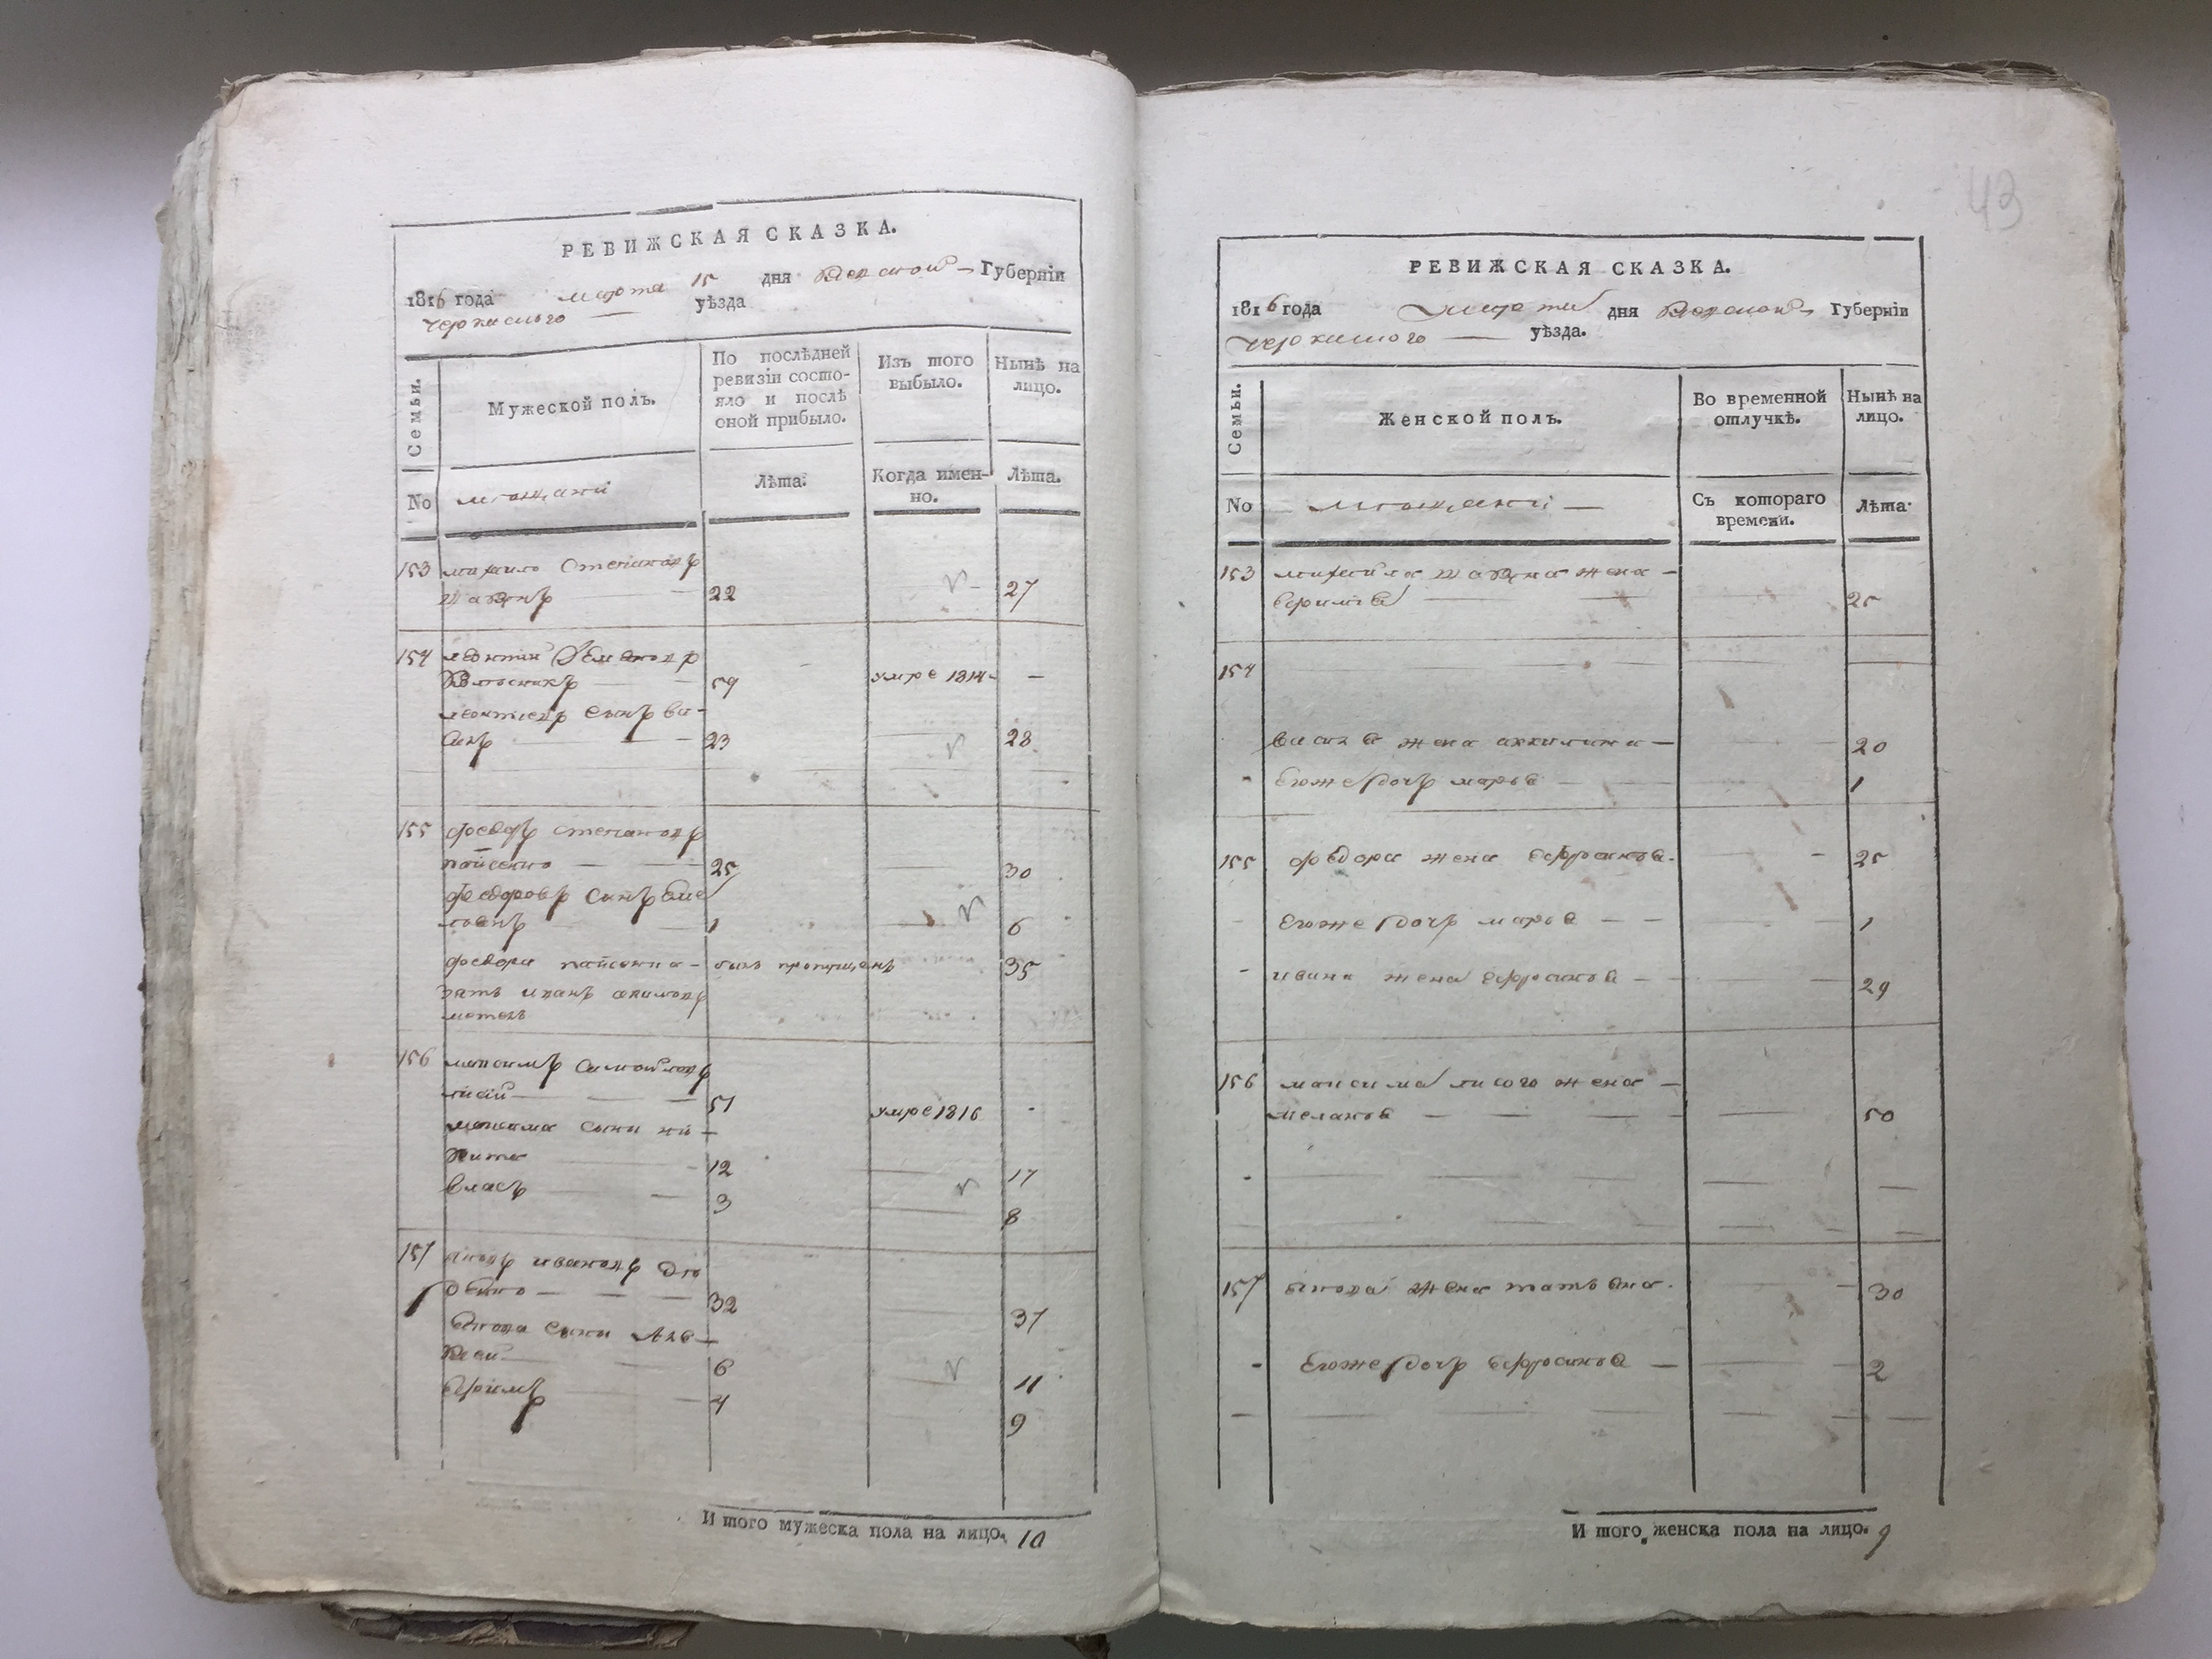 РЕВИЖСКАЯ СКАЗКА.
1816 года марта 15 дня Киевской Губерніи
Черкаского уѣзда
Семьи.
Мужеской полъ.
По послѣдней ревизіи состо-
яло и послѣ
оной прибыло.
Изъ того
выбыло.
Нынѣ на
лицо.
No
мещани
Лѣта.
Когда имен-
но.
Лѣта.
153 михайло Степановъ
22 27
154 леонтий Семеновъ
59 умре 1814 —
леонтиевъ сынъ ва-
силь 23 28
155 федоръ степановъ
25 30
федоровъ сынъ еме
льянъ 1 6
федора былъ пропущенъ 35
зять иванъ акимовъ
156 максимъ Самойловъ
лисий 51 умре 1816
максима сыни ни-
кита 12 17
власъ 3 8
157 яковъ ивановъ
32 37
якова сыни Алек-
сей 6 11
ефимъ 4 9
И того мужеска пола на лицо. 10
43
РЕВИЖСКАЯ СКАЗКА.
1816 года марта дня Киевской Губерніи
Черкаского уѣзда.
Семьи.
Женской полъ.
Во временной
отлучкѣ.
Нынѣ на
лицо.
No
мещани
Съ котораго
времени.
Лѣта.
153 михайла жена
25
154
василя жена аккилина 20
Егоже дочь марья 1
155 федора жена Ефросинья 25
Егоже дочь марья 1
ивана жена Ефросинья 29
156 максима лисого жена
меланья 50
157 якова жена татьяна 30
Егоже дочь Ефросинья 2
И того женска пола на лицо. 9